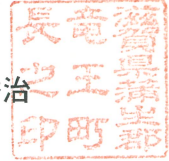 滋賀県蒲生郡
竜王町
長之印
治